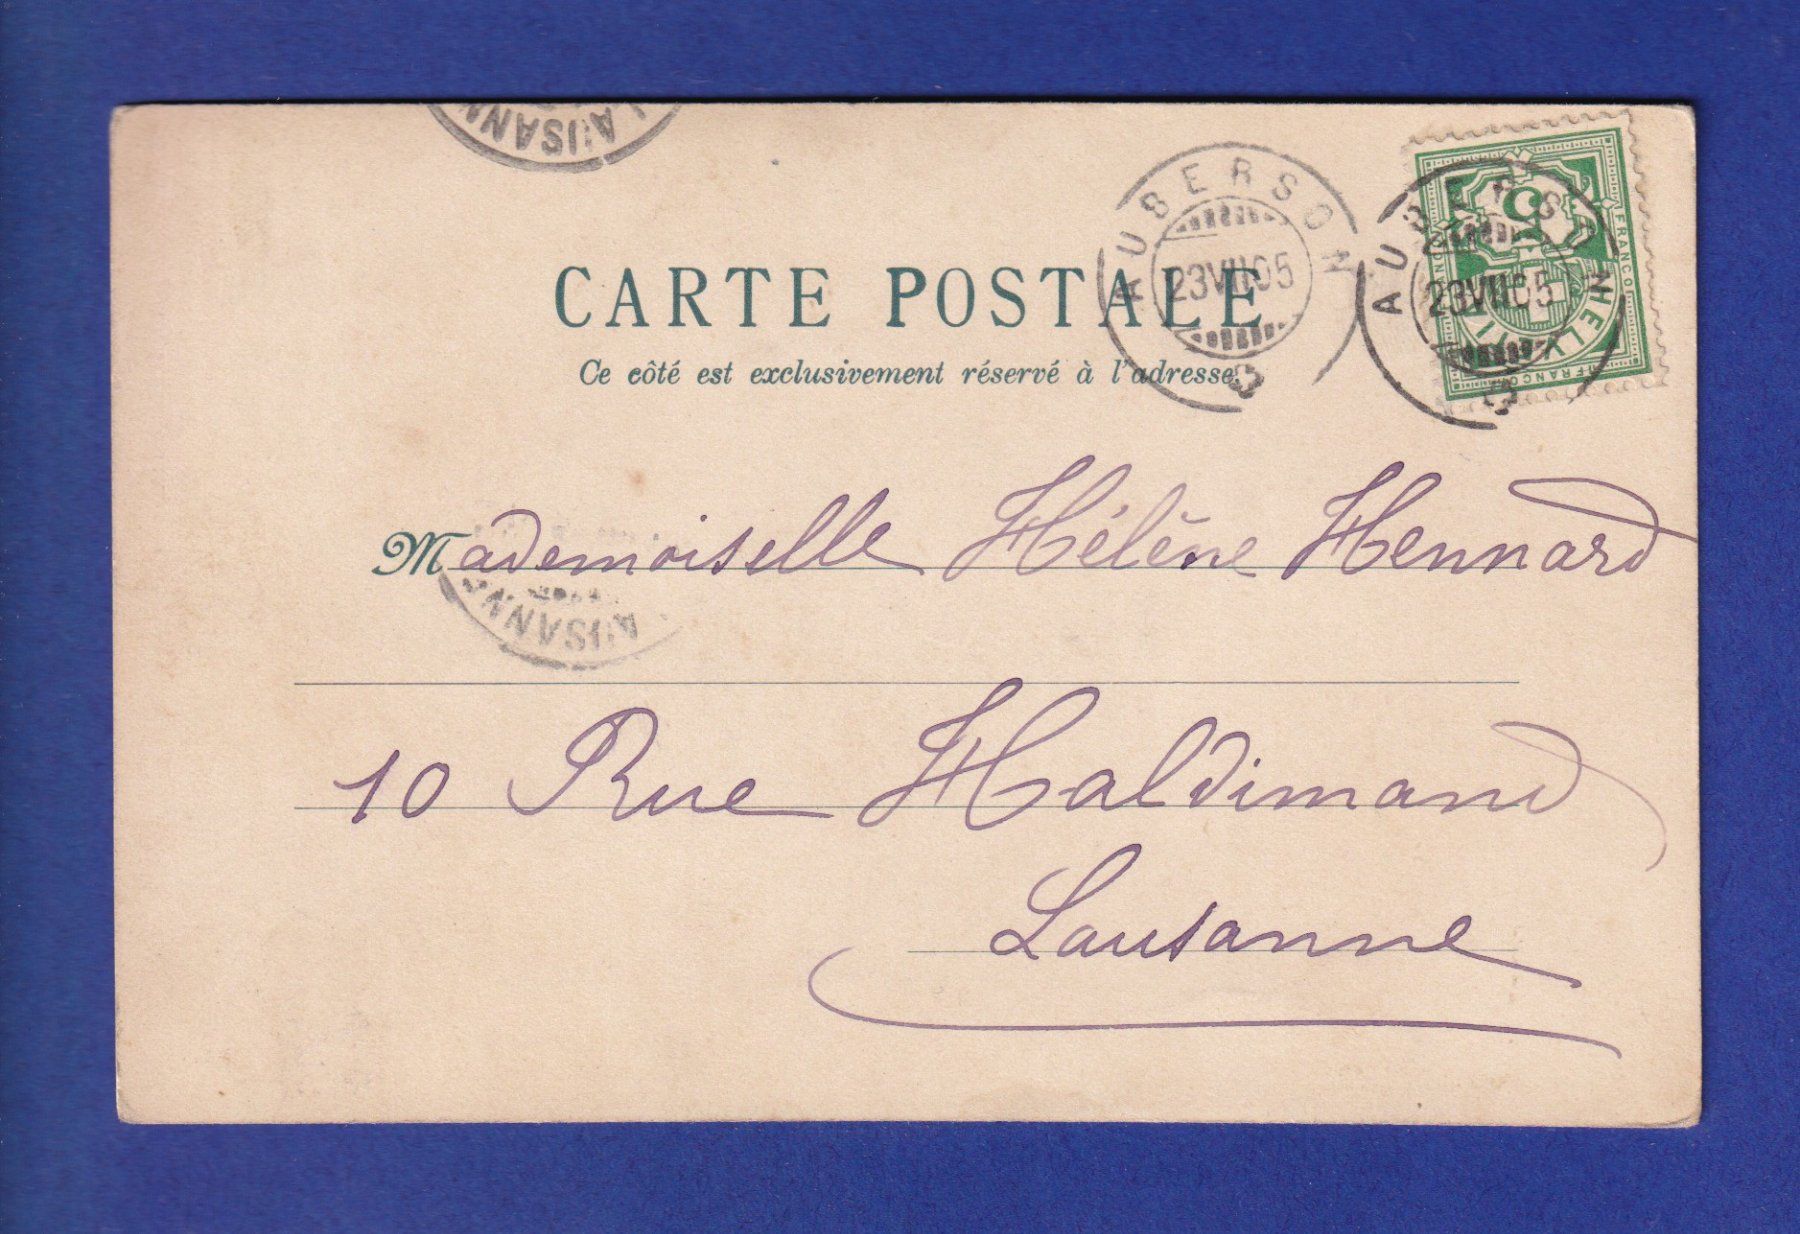 LAUSANN
AUBERSON
23 VII 05
AUBERSON
23 VII 05
5
FRANCO
HELV
FRANCO
CARTE POSTALE
Ce côté est exclusivement réservé à l'adresse.
Mademoiselle Hélène Hennard
USANN
10 Rue Haldimand
Lausanne